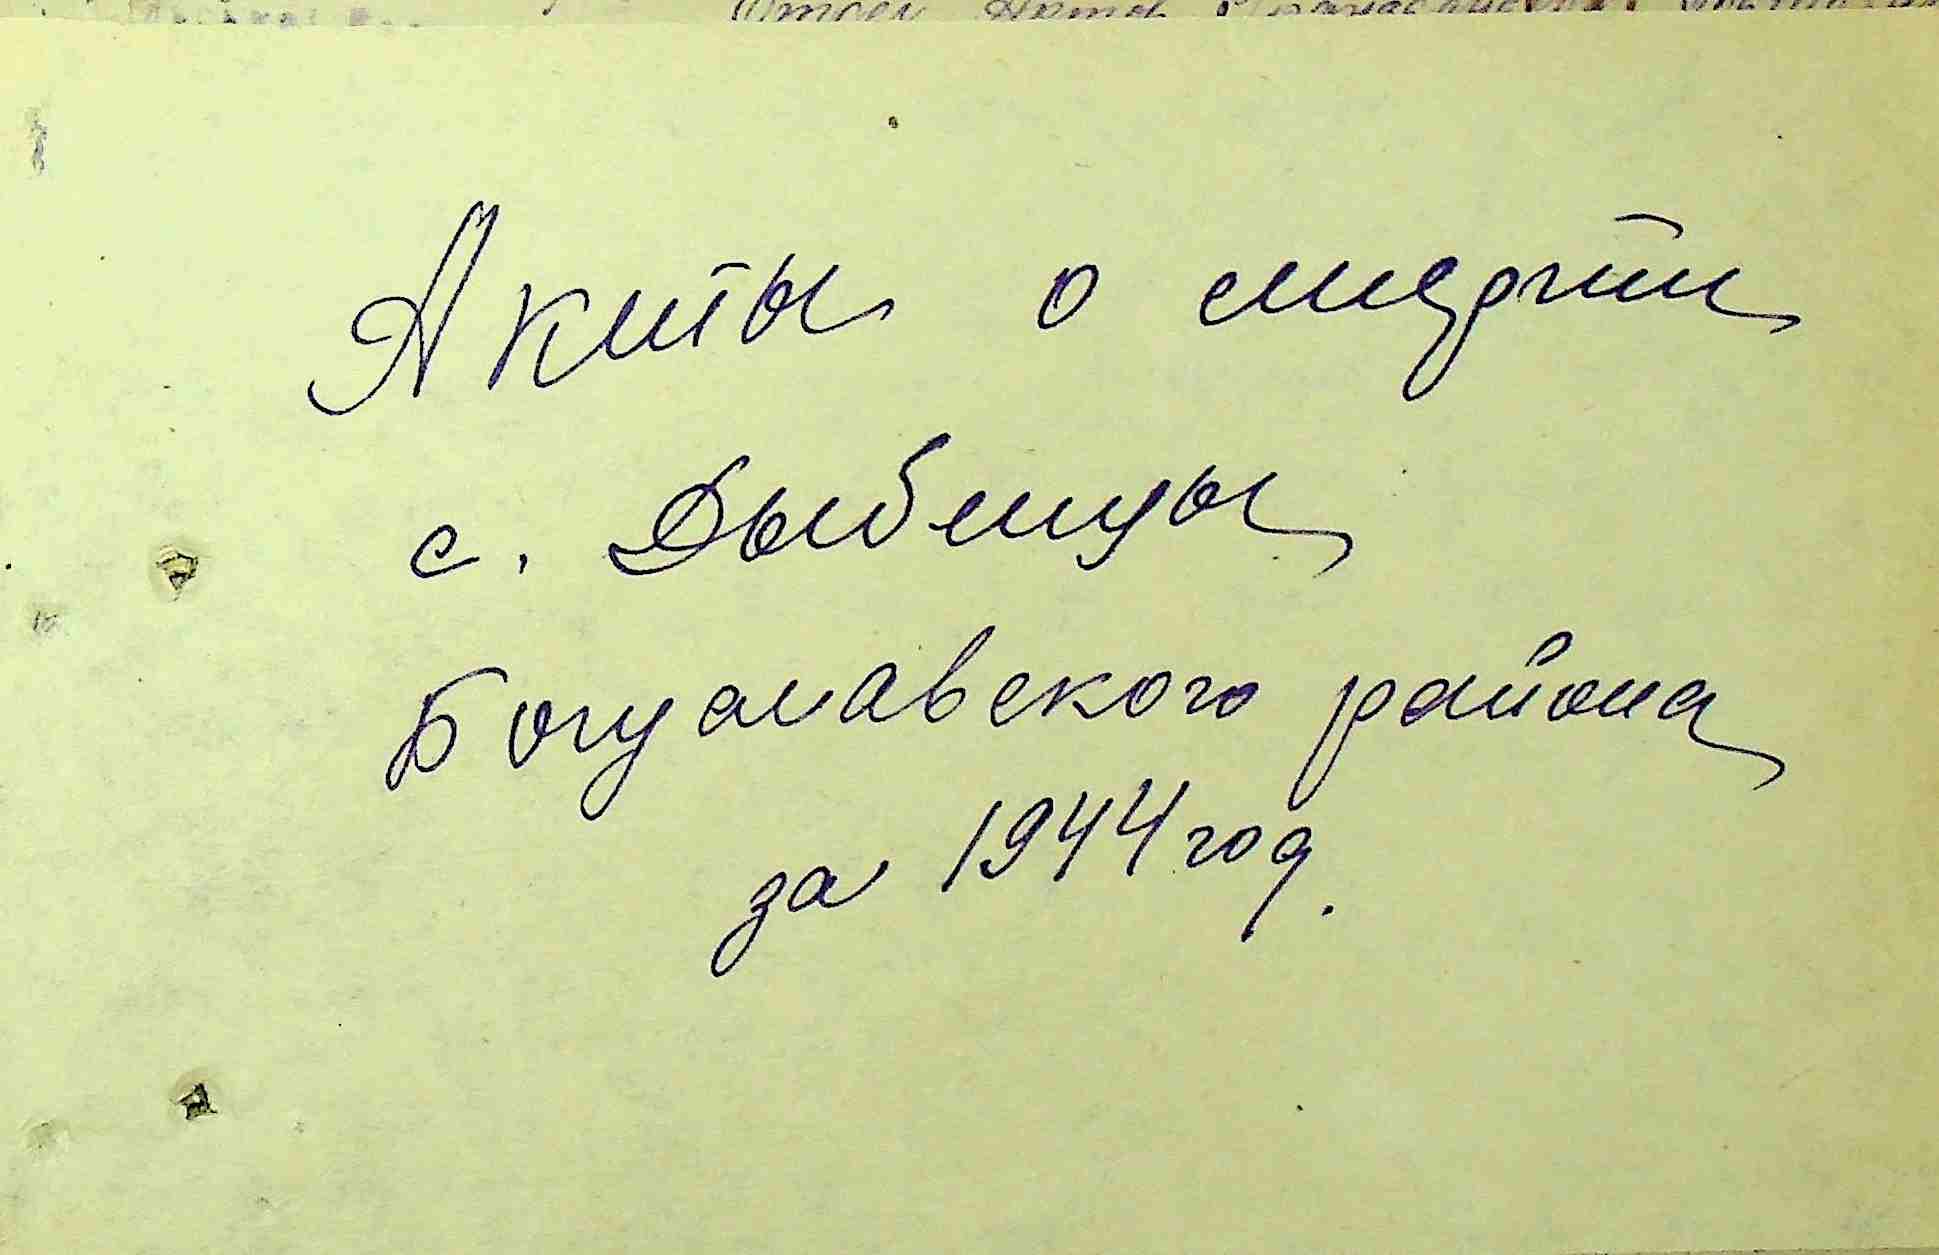 Акты о смерти
с. Дыбенцы
Богуславского района
за 1944 год.